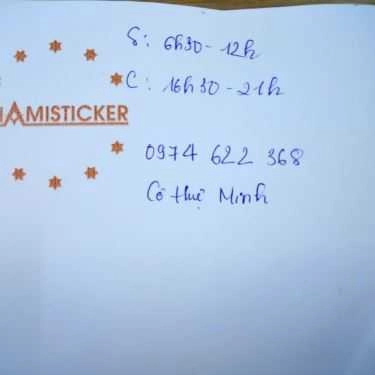 S: 6h30 - 12h
C: 16h30 - 21h
AMISTICKER
0974 622 368
Cô Huệ Minh